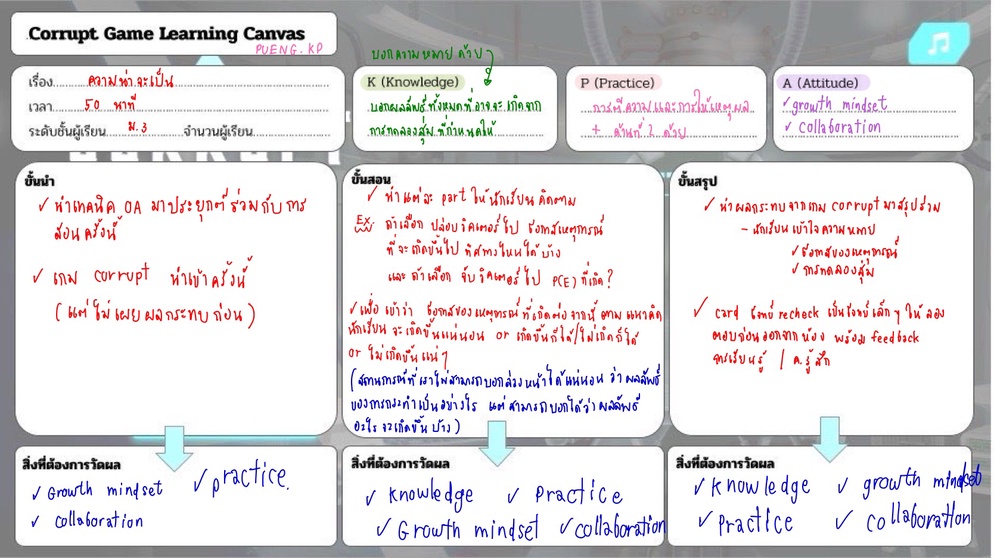 Corrupt Game Learning Canvas
PUENG.KP
เรื่อง ความน่าจะเป็น
เวลา 50 นาที
ระดับชั้นผู้เรียน ม.3 จำนวนผู้เรียน
บอกความหมายด้วย
K (Knowledge)
บอกผลลัพธ์ทั้งหมดที่อาจจะเกิดจาก
การทดลองสุ่มที่กำหนดให้
P (Practice)
การตีความและการให้เหตุผล
+ ด้านที่ 2 ด้วย
A (Attitude)
✓ growth mindset
✓ collaboration
ขั้นนำ
✓ นำเทคนิค OA มาประยุกต์ร่วมกับการ
สอนครั้งนี้
✓ เกม corrupt นำเข้าครั้งนี้
(แต่ไม่เผยผลกระทบก่อน)
ขั้นสอน
✓ นำแต่ละ part ให้นักเรียนคิดตาม
EX. ถ้าเลือก ปล่อยวิคเตอร์ไป โอกาสเหตุการณ์
ที่จะเกิดขึ้นไป ทิศทางไหนได้บ้าง
และ ถ้าเลือก จับวิคเตอร์ไป P(E) ที่เกิด?
✓ เพื่อ เข้าว่า โอกาสของเหตุการณ์ที่เกิดต่อจากนี้ ตาม แนวคิด
นักเรียน จะเกิดขึ้นแน่นอน or เกิดขึ้นก็ได้/ไม่เกิดก็ได้
or ไม่เกิดขึ้นแน่ๆ
(สถานการณ์ที่เราไม่สามารถบอกล่วงหน้าได้แน่นอน ว่าผลลัพธ์
ของการกระทำเป็นอย่างไร แต่สามารถบอกได้ว่าผลลัพธ์
อะไรจะเกิดขึ้นบ้าง)
ขั้นสรุป
✓ นำผลกระทบจากเกม corrupt มาสรุปร่วม
- นักเรียนเข้าใจความหมาย
✓ โอกาสของเหตุการณ์
✓ การทดลองสุ่ม
✓ card โจทย์ recheck เป็นโจทย์เล็กๆ ให้ลอง
ตอบก่อนออกจากห้อง พร้อม feedback
การเรียนรู้ / ค.รู้สึก
สิ่งที่ต้องการวัดผล
✓ Growth mindset ✓ practice.
✓ collaboration
สิ่งที่ต้องการวัดผล
✓ Knowledge ✓ Practice
✓ Growth mindset ✓ collaboration
สิ่งที่ต้องการวัดผล
✓ Knowledge ✓ growth mindset
✓ Practice ✓ collaboration